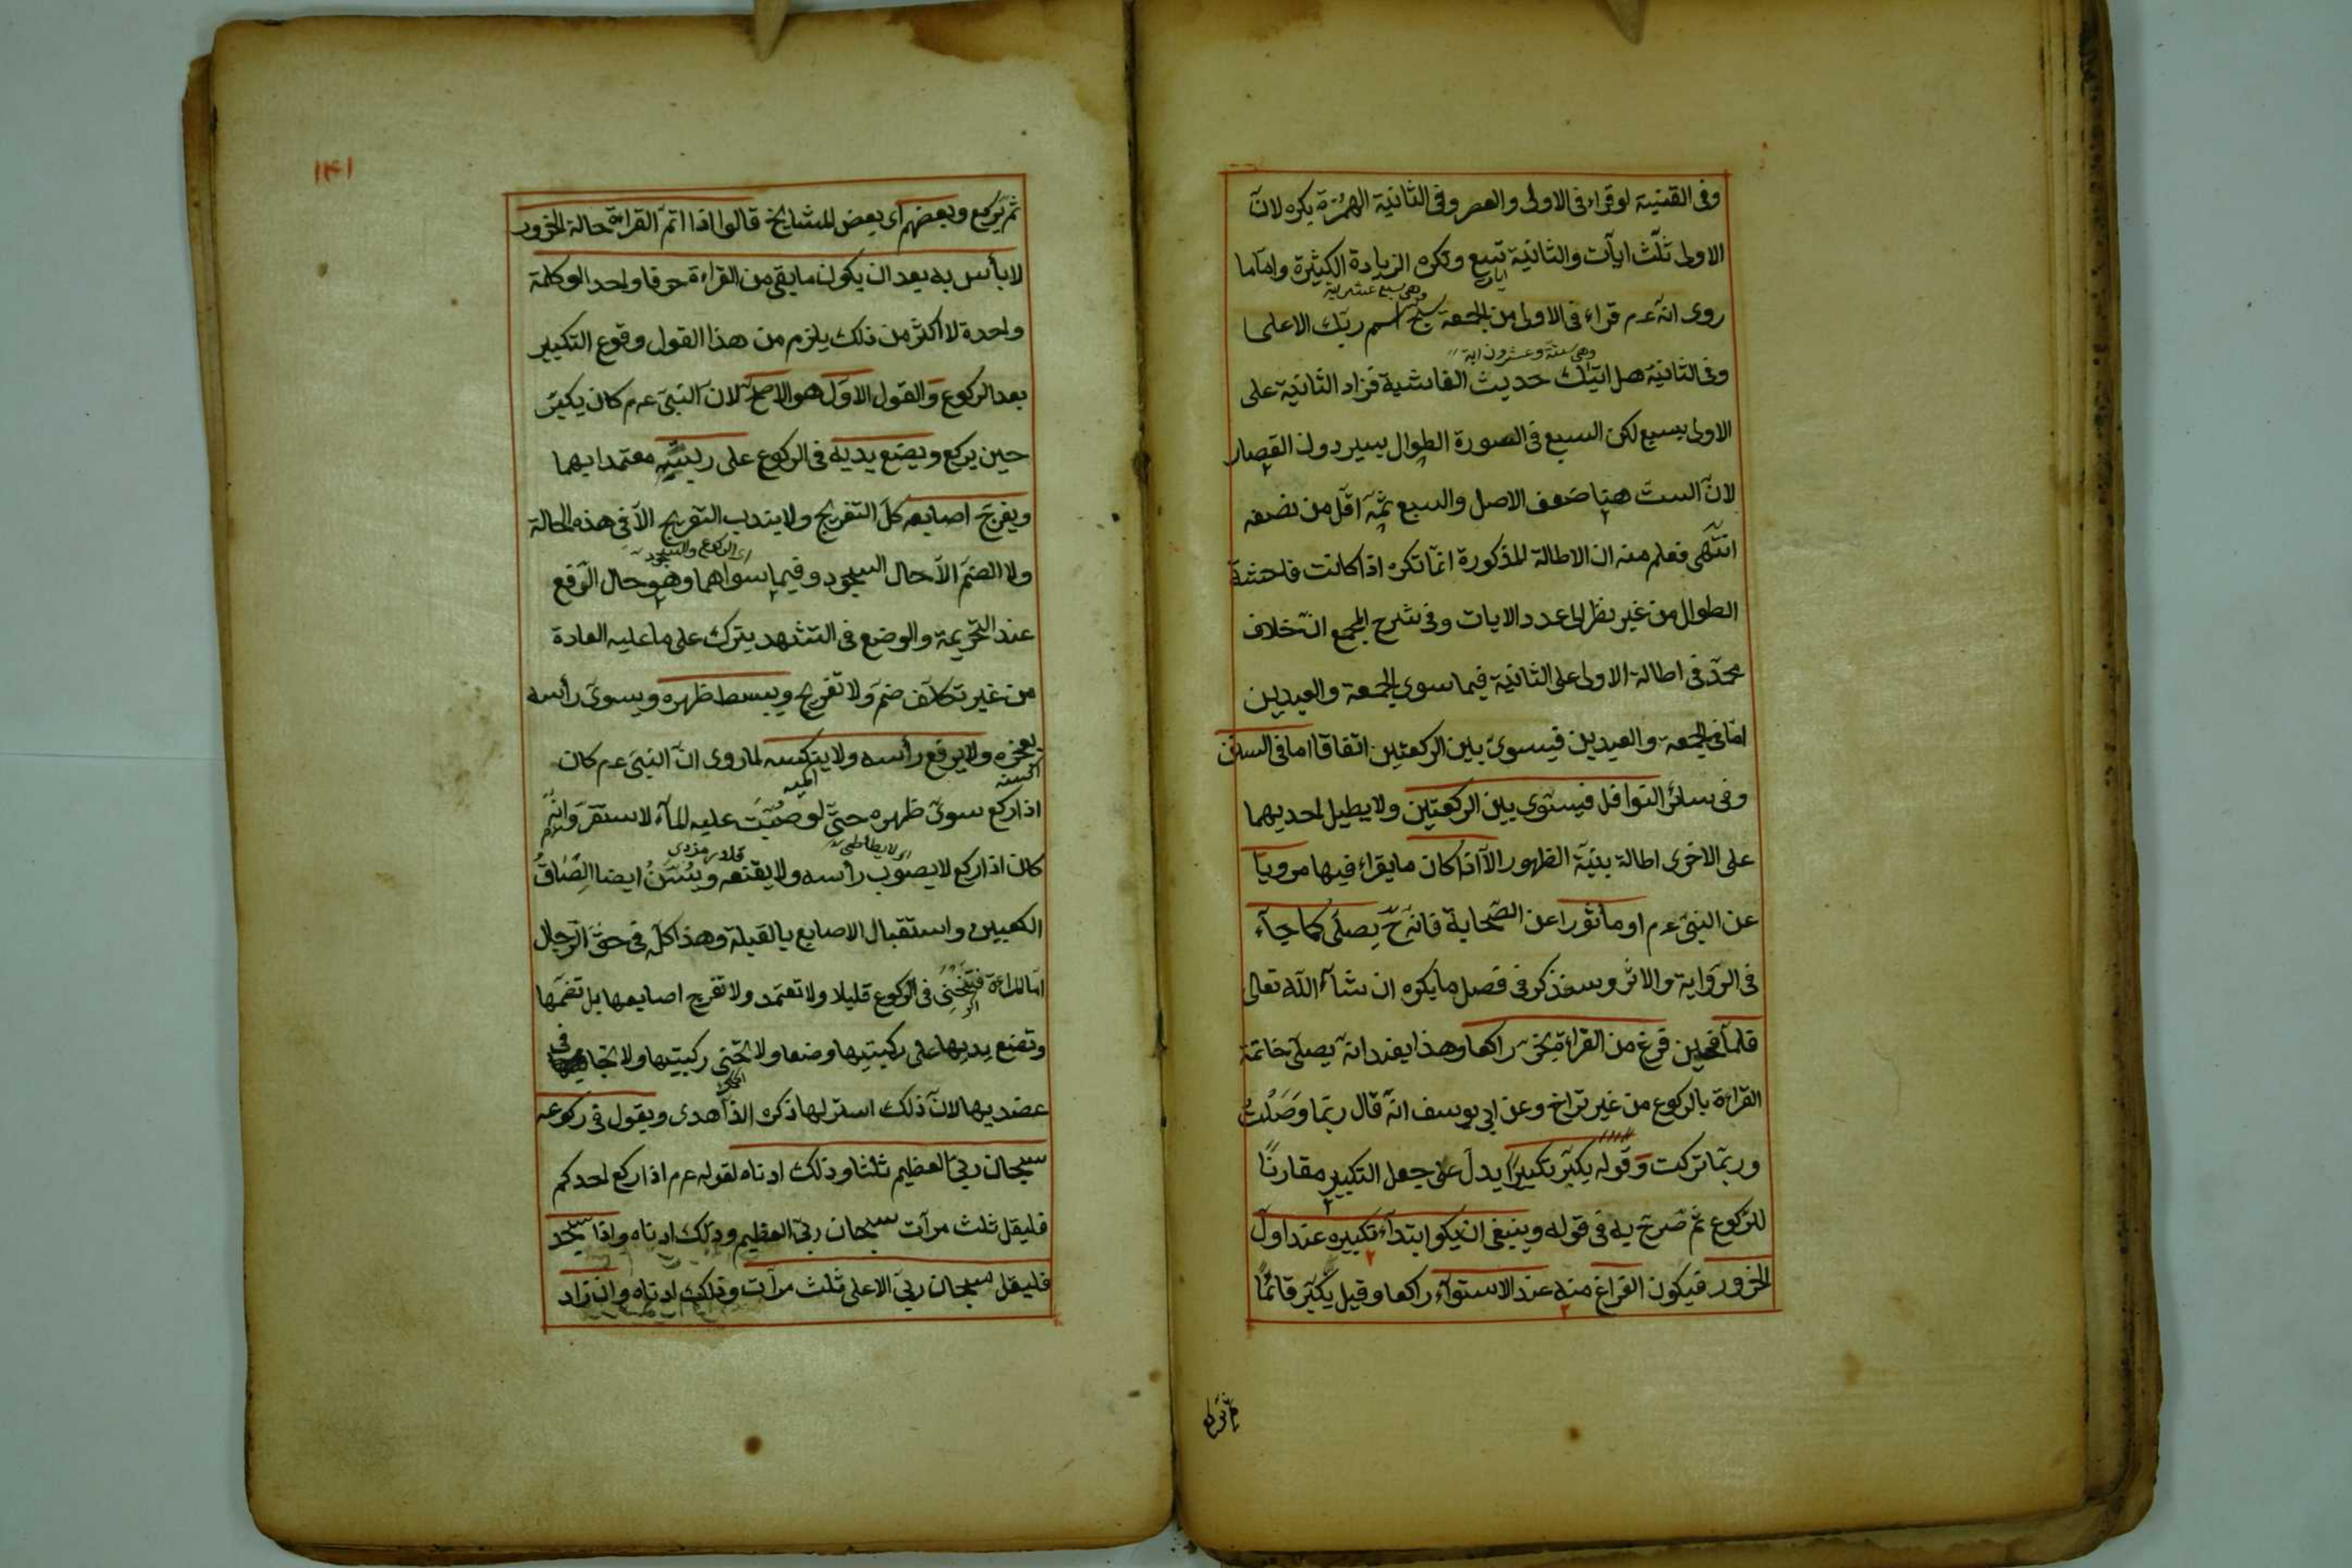 وفى القنية لو قراء فى الاولى والعصر وفى الثانية الهمزة يكره لانّ
الاولى ثلث ايات والثانية تسع وتكره الزيادة الكثيرة وامّا ما
ايات
وهى تسع عشر اية
روى انّه عم قراء فى الاولى من الجمعة سبح اسم ربّك الاعلى
وهى ستة وعشرون اية
وفى الثانية هل اتيك حديث الغاشية فزاد الثانية على
الاولى بسبع لكن السبع فى الصورة الطوال يسير دون القصار
لانّ الست هنا ضعف الاصل والسبع ثمّه اقلّ من نصفه
انتهى فعلم منه ان الاطالة المذكورة انّما تكره اذا كانت فاحشة
الطوال من غير نظر الى عدد الايات وفى شرح المجمع انّ خلاف
محمّد فى اطالة الاولى على الثانية فيما سوى الجمعة والعيدين
امّا فى الجمعة والعيدين فيسوى بين الركعتين اتفاقا اما فى السنن
وفى سائر النوافل فيستوى بين الركعتين ولا يطيل احديهما
على الاخرى اطالة بنيّة الظهور الّا اذا كان ما يقراء فيها مرويّا
عن النبىّ عم او مأثورا عن الصّحابة فانّه ح يصلى كما جآء
فى الرّواية والاثر وسنذكر فى فصل ما يكره ان شآء الله تعالى
فلمّا فحين فرغ من القراءة يخرّ راكعا وهذا يفيد انه يصلى خاتمة
القراءة بالركوع من غير تراخ وعن ابى يوسف انّه قال ربّما وصلت
وربّما تركت وقوله يكبّر تكبيرا يدلّ على جعل التكبير مقارنًا
للرّكوع ثم صرّح به فى قوله وينبغى ان يكو ابتدآء تكبيره عند اوّل
الخرور فيكون الفراغ منه عند الاستوآء راكعا وقيل يكبّر قائمًا
ثم يركع
١٤١
ثم يركع وبعضهم اى بعض المشايخ قالوا اذا اتمّ القراءة حالة الخرور
لا بأس به بعد ان يكون ما بقى من القراءة حرفا واحدا او كلمة
واحدة لا اكثر من ذلك يلزم من هذا القول وقوع التكبير
بعد الركوع والقول الاوّل هو الاصحّ لانّ النبىّ عم كان يكبّر
حين يركع ويضع يديه فى الركوع على ركبتيه معتمدا بهما
ويفرج اصابعه كلّ التفريج ولا يندب التفريج الّا فى هذه الحالة
اى الركوع والسجود
ولا الضمّ الّا حال السجود وفيما سواهما وهو حال الرّفع
عند التحريمة والوضع فى التشهد يترك على ما عليه العادة
من غير تكلّف ضمّ ولا تفريج ويبسط ظهره ويسوى رأسه
بعجزه ولا يرفع رأسه ولا ينكسه لما روى انّ النبىّ عم كان
اذا ركع سوىّ ظهره حتّى لو صبّت عليه المآء لاستقرّ وانّه
اى لا يطأطئ
كان اذا ركع لا يصوب رأسه ولا يقنعه ويسنّ ايضا الصاق
الكعبين واستقبال الاصابع بالقبلة وهذا كلّه فى حقّ الرّجال
امّا المراءة فتنحنى فى الركوع قليلا ولا تعتمد ولا تفرج اصابعها بل تضمّها
وتضع يديها على ركبتيها وضعا ولا تحنى ركبتيها ولا تجافى
عضديها لانّ ذلك استر لها ذكره الزاهدى ويقول فى ركوعه
سبحان ربىّ العظيم ثلثا وذلك ادناه لقوله عم اذا ركع احدكم
فليقل ثلث مرّات سبحان ربىّ العظيم وذلك ادناه واذا سجد
فليقل سبحان ربىّ الاعلى ثلث مرّات وذلك ادناه وان زاد